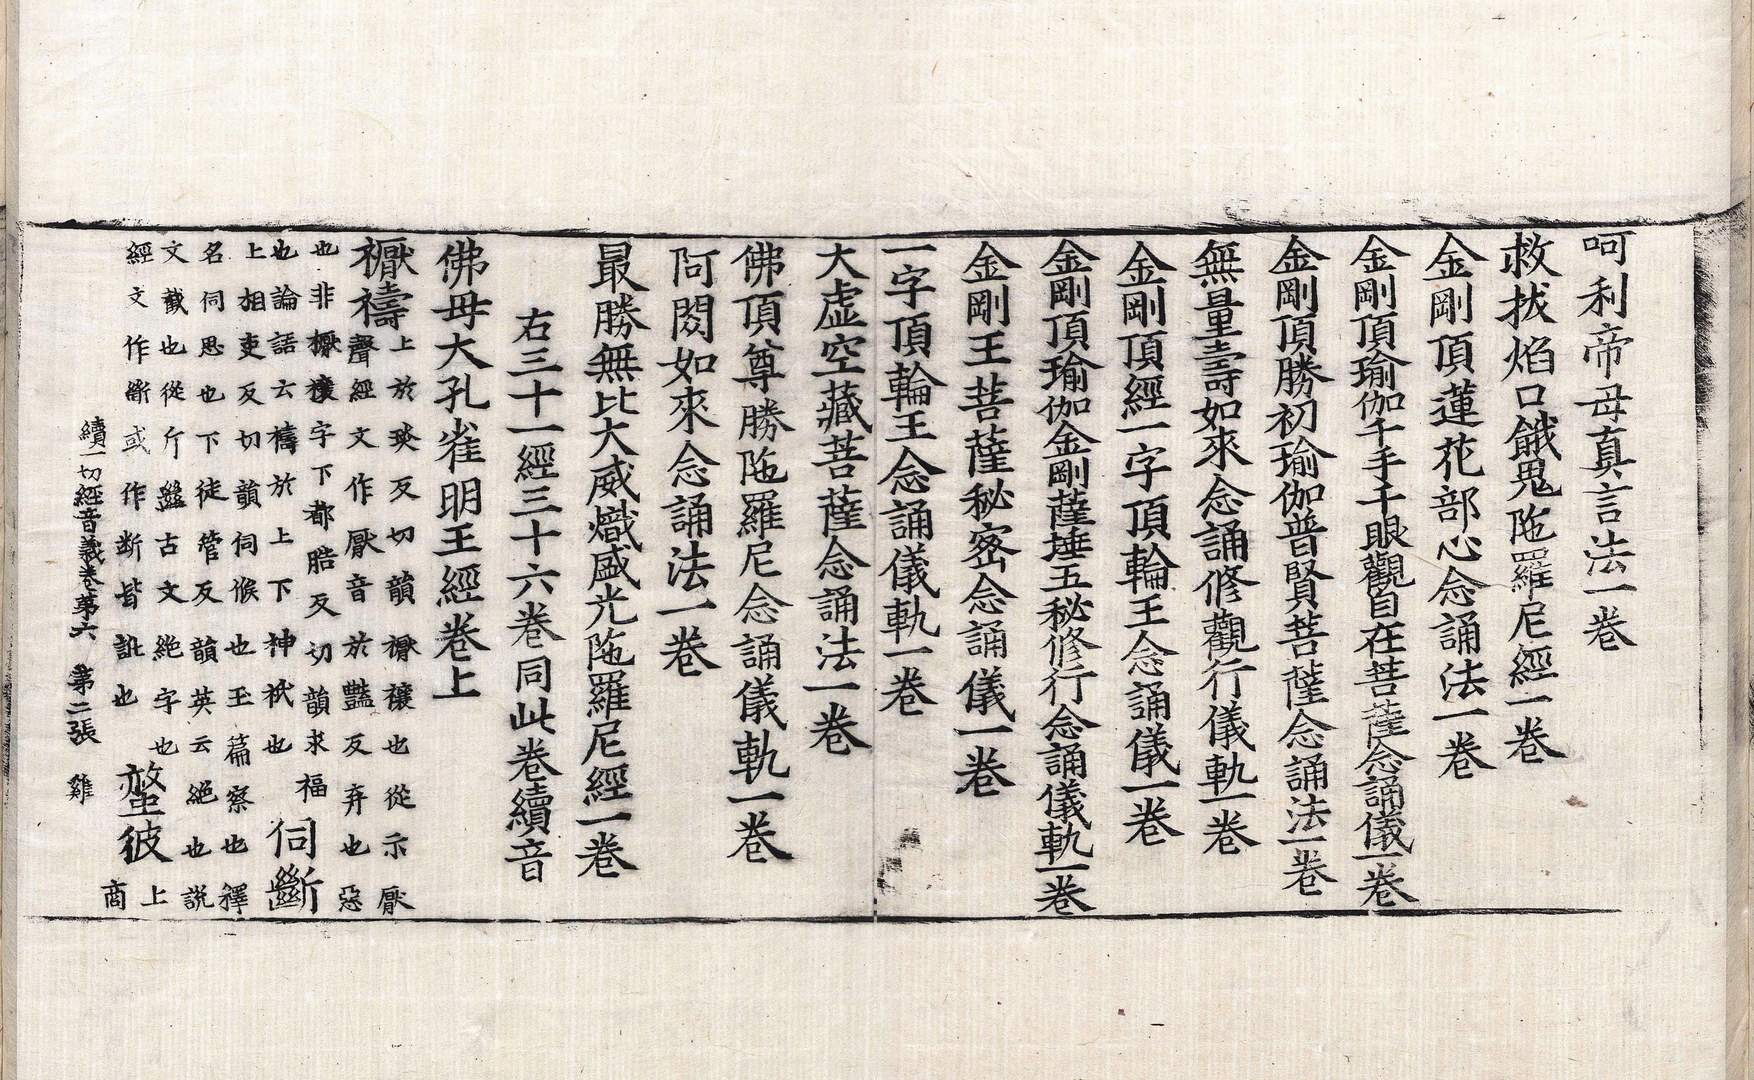 呵利帝母真言法一卷
救拔焰口餓鬼陁羅尼經一卷
金剛頂蓮花部心念誦法一卷
金剛頂瑜伽千手千眼觀自在菩薩念誦儀一卷
金剛頂勝初瑜伽普賢菩薩念誦法一卷
無量壽如來念誦修觀行儀軌一卷
金剛頂經一字頂輪王念誦儀一卷
金剛頂瑜伽金剛薩埵五秘修行念誦儀軌一卷
金剛王菩薩秘密念誦儀一卷
一字頂輪王念誦儀軌一卷
大虛空藏菩薩念誦法一卷
佛頂尊勝陁羅尼念誦儀軌一卷
阿閦如來念誦法一卷
最勝無比大威熾盛光陁羅尼經一卷
右三十一經三十六卷同此卷續音
佛母大孔雀明王經卷上
𥜒禱上於琰反切韻𥜒禳也從示厭
聲經文作厭音於豔反弃也惡
也非𥜒禳字下都晧反切韻求福
也論語云禱於上下神祇也伺斷
上相吏反切韻伺候也玉篇察也釋
名伺思也下徒管反韻英云絕也說
文截也從斤𢇍古文絕字也螫彼上
經文作𣂔或作断皆訛也商
續一切經音義卷第六 第二張 雞